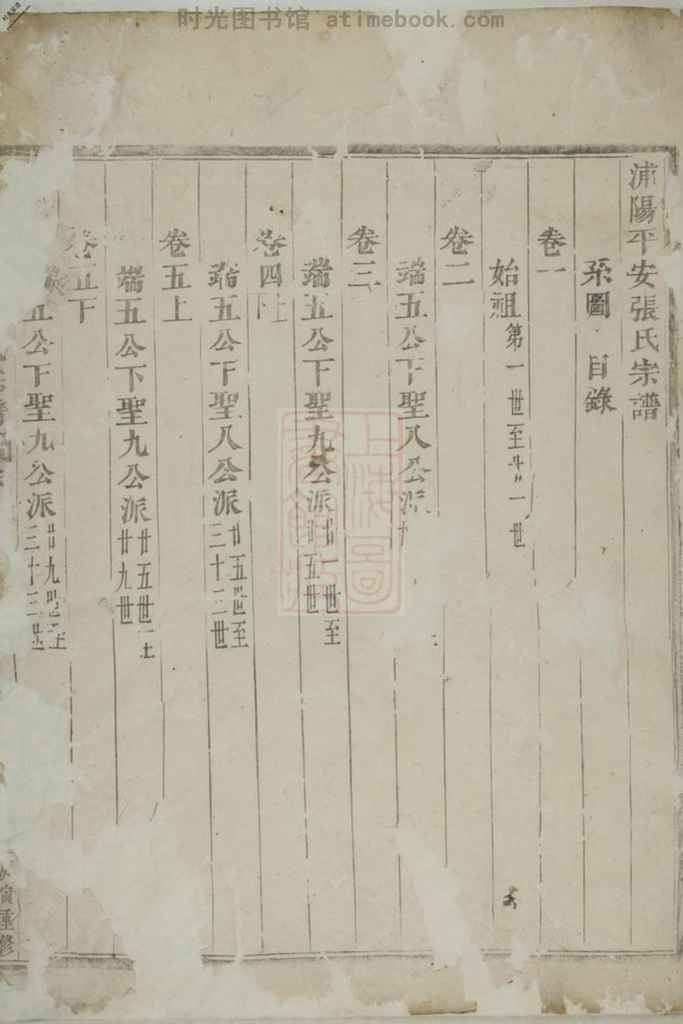 时光图书馆 atimebook.com
浦陽平安張氏宗譜
系圖 目錄
卷一
始祖第一世至廿一世
卷二
端五公下聖八公派
卷三
端五公下聖九公派廿一世至廿五世
卷四
端五公下聖八公派廿五世至三十三世
卷五上
端五公下聖九公派廿五世至廿九世
卷五下
五公下聖九公派廿九世至三十三世
重修
上海圖